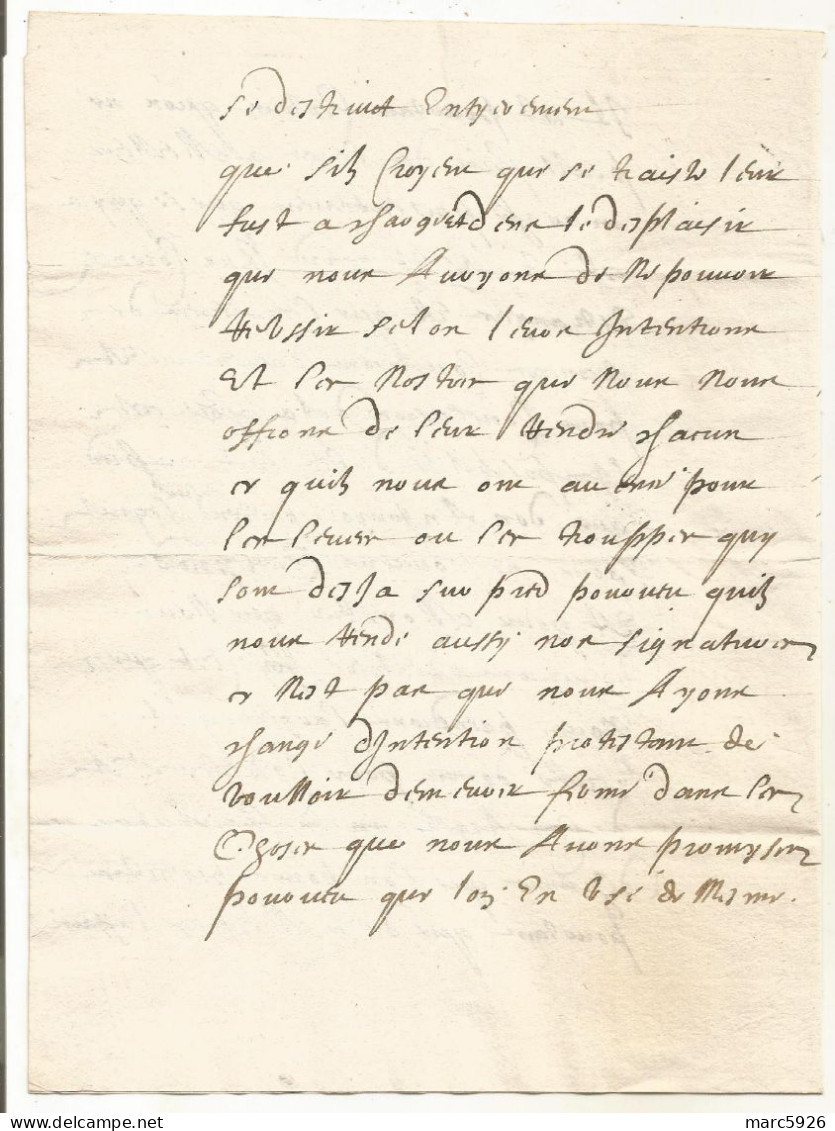 se destruit Entyerement
que silz Croyent que se traiste leur
fust a a le desplaisir
que nous Auoyons de Ne pouuoir
Reussir selon leurs Intentions
Et les Nostres que Nous Nous
offrons de leur Rendre chacun
ce quilz nous ont auence pour
les leuer ou les trouppes quy
sont desJa sur pied pourueu quilz
nous Rende aussy nos signatures
ce Nest pas que nous Ayons
change dIntention protestant de
voulloir demeurer ferme dans les
Choses que nous Auons promyses
pourueu que lon En Vse de Mesme.
marc5926